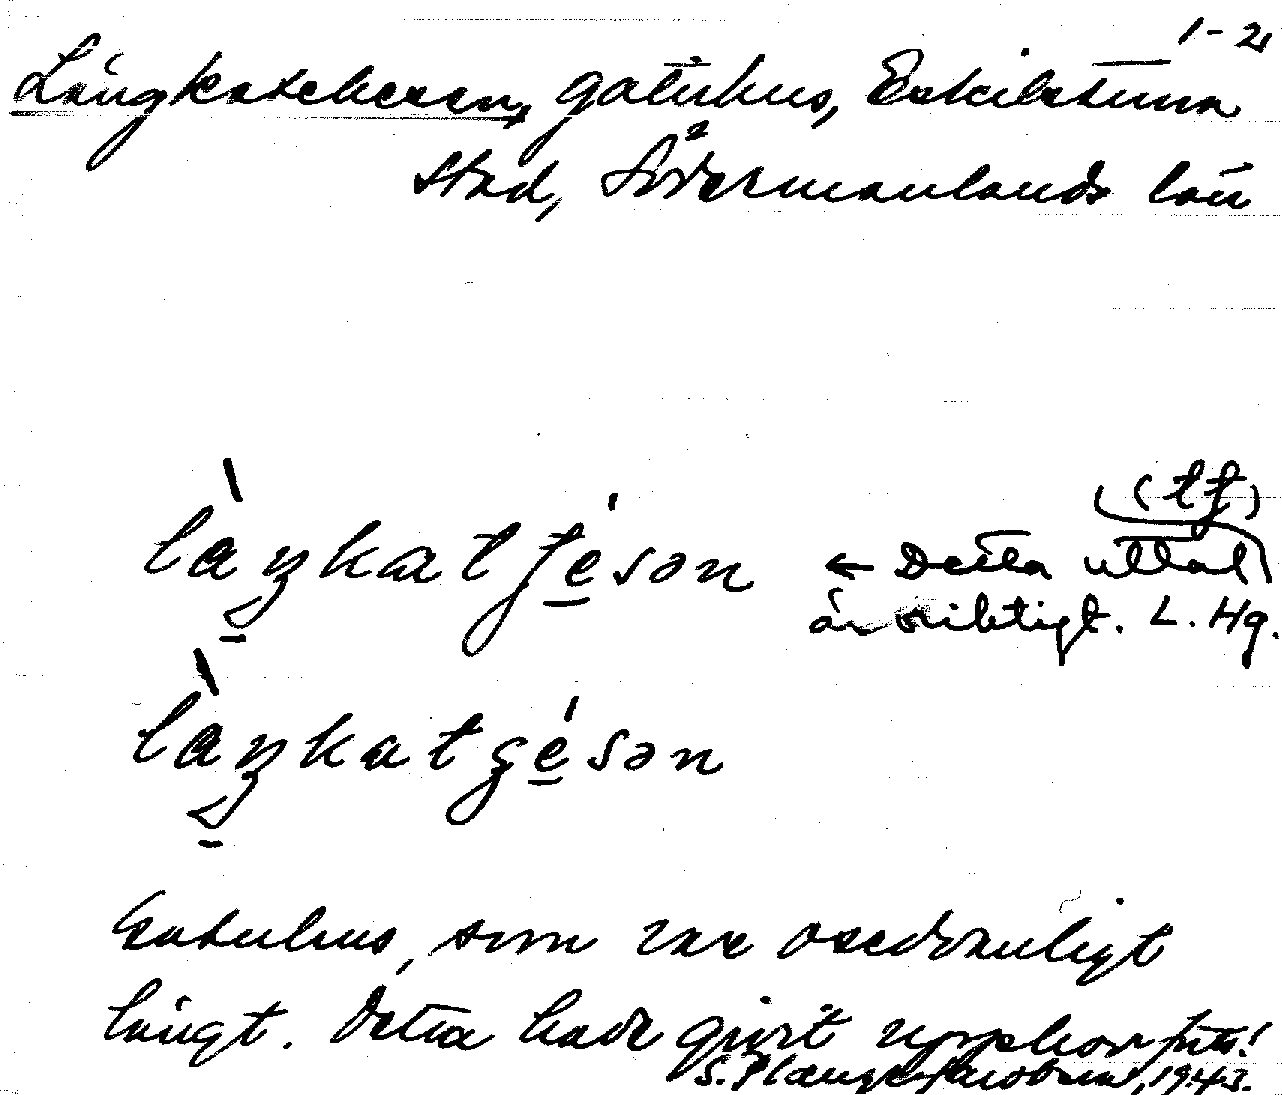 1-2
Långkatekesen, gatuhus, Eskilstuna
stad, Södermanlands län
(tʃ)
làŋkatʃésən ← Detta uttal
är riktigt. L. Hg.
làŋkatçésən
Gatuhus, som var osedvanligt
långt. Detta hade gjort upphov
S. Plænge Jacobson, 1943.